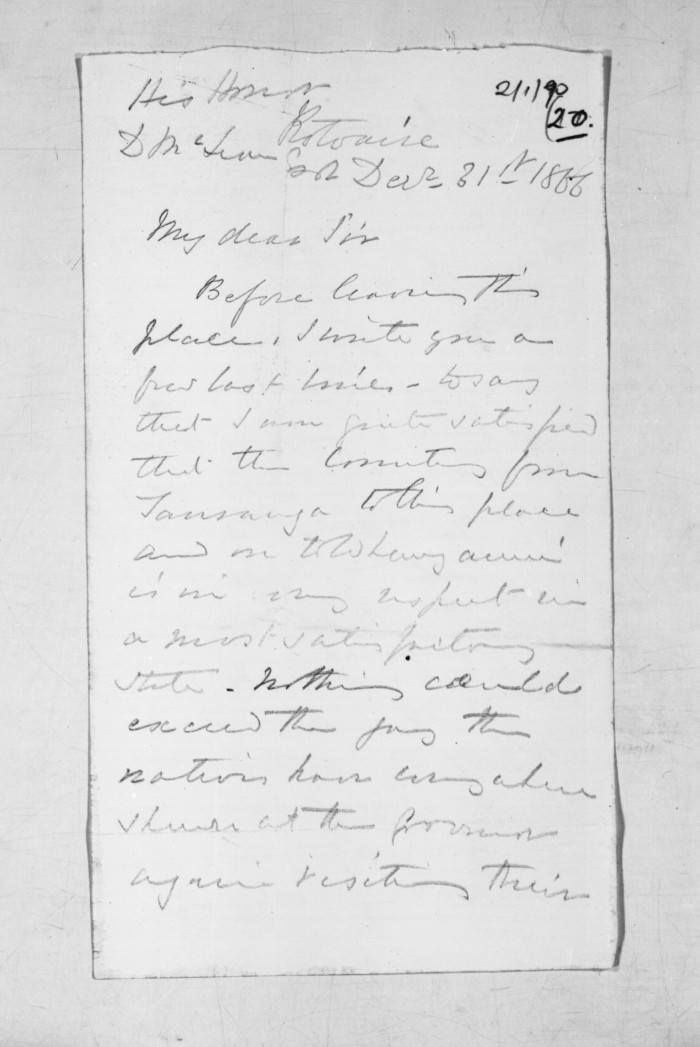 His Honor
D McLean
2/1/90
20.
Rotoaira
Decr 31st 1866
My dear Sir
Before leaving this
place, I write you a
few last lines - to say
that I am quite satisfied
that the country from
Tauranga to this place
and on to Whanganui
is in every respect in
a most satisfactory
state - nothing could
exceed the joy the
natives have everywhere
shewn at the Governor
again visiting their